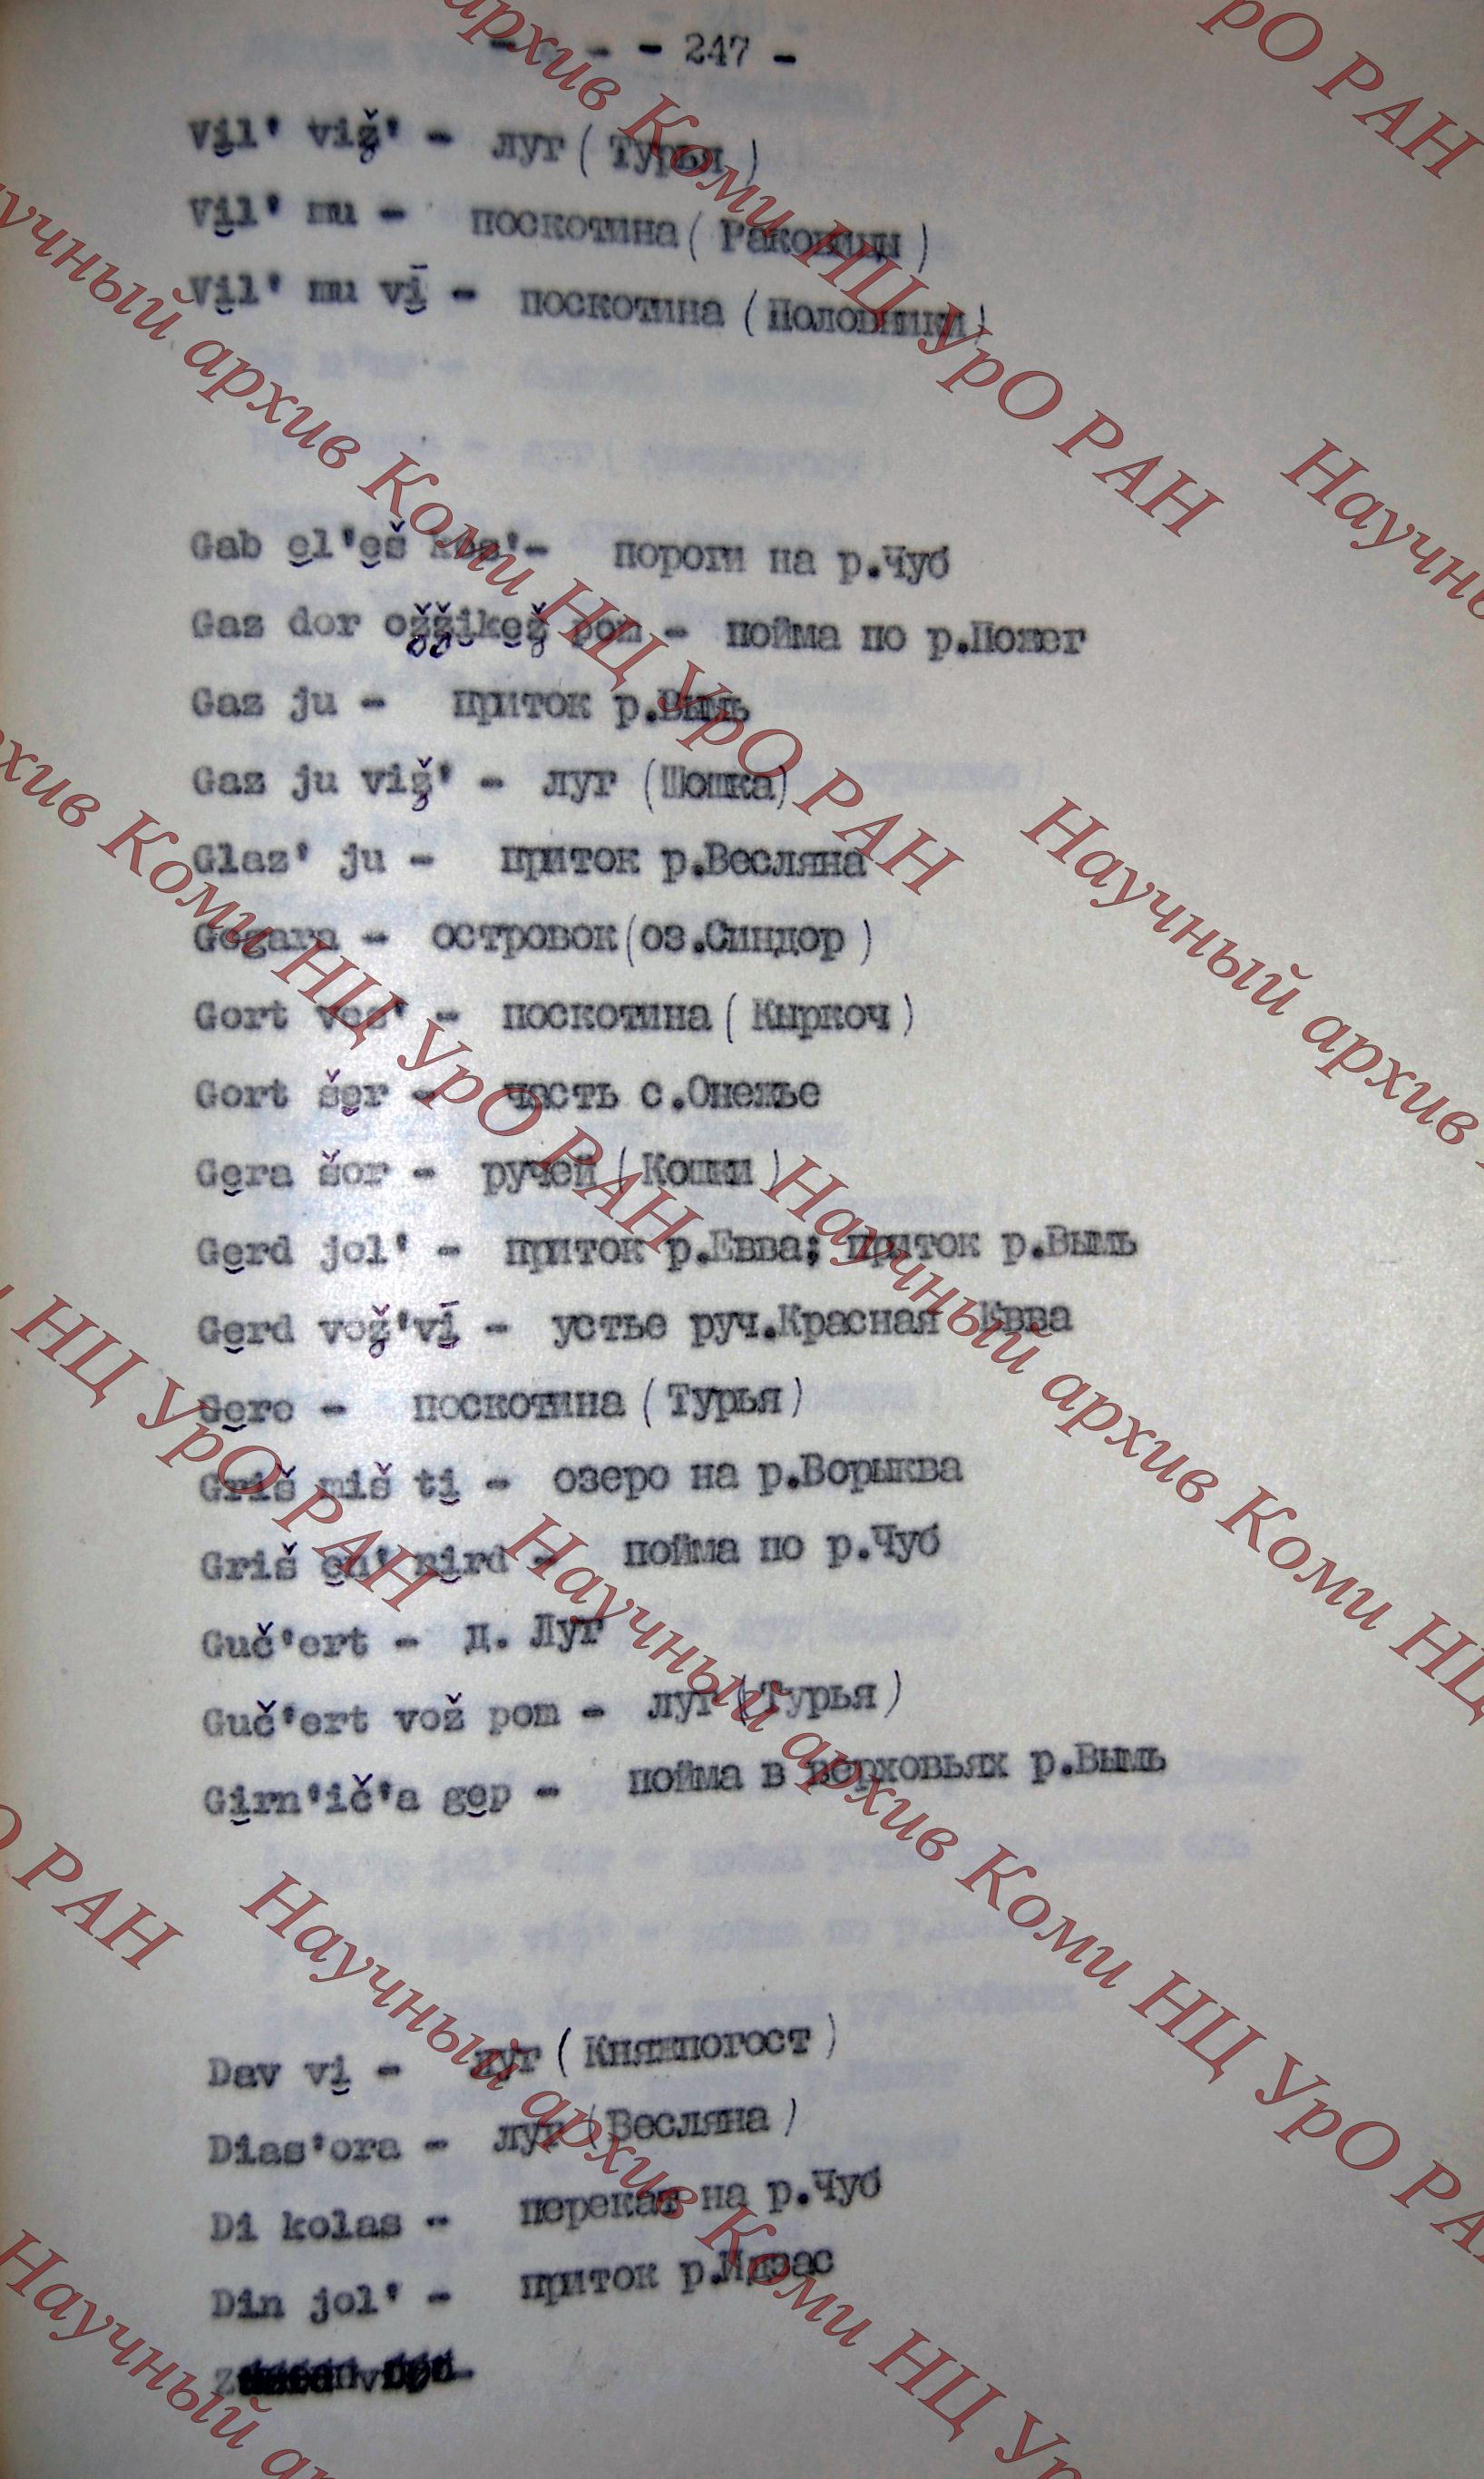 - 247 -
Vi̮l' viǯ' - луг (Турья)
Vi̮l' mu - поскотина (Раковицы)
Vi̮l' mu vī̮ - поскотина (Половники)
Gab e̮l'e̮š kos'- пороги на р.Чуб
Gaz dor oǯǯi̮ke̮ǯ pom - пойма по р.Пожег
Gaz ju - приток р.Вымь
Gaz ju viǯ' - луг (Шошка)
Glaz' ju - приток р.Весляна
Gogara - островок (оз.Синдор)
Gort ves' - поскотина (Кыркоч)
Gort še̮r - часть с.Онежье
Ge̮ra šor - ручей (Кошки)
Ge̮rd jol' - приток р.Евва; приток р.Вымь
Ge̮rd voǯ'vī̮ - устье руч.Красная Евва
Ge̮re - поскотина (Турья)
Griš miš ti̮ - озеро на р.Ворыква
Griš e̮n' ni̮rd - пойма по р.Чуб
Guč'ert - д. Луг
Guč'ert vož pom - луг (Турья)
Gi̮rn'ič'a ge̮p - пойма в верховьях р.Вымь
Dav vi̮ - луг (Княжпогост)
Dias'ora - луг (Весляна)
Di kolas - перекат на р.Чуб
Din jol' - приток р.Идзас
Научный архив Коми НЦ УрО РАН